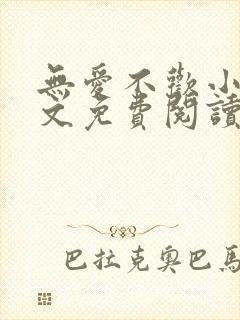 無愛不歡小
文免費閱讀
巴拉克奧巴馬